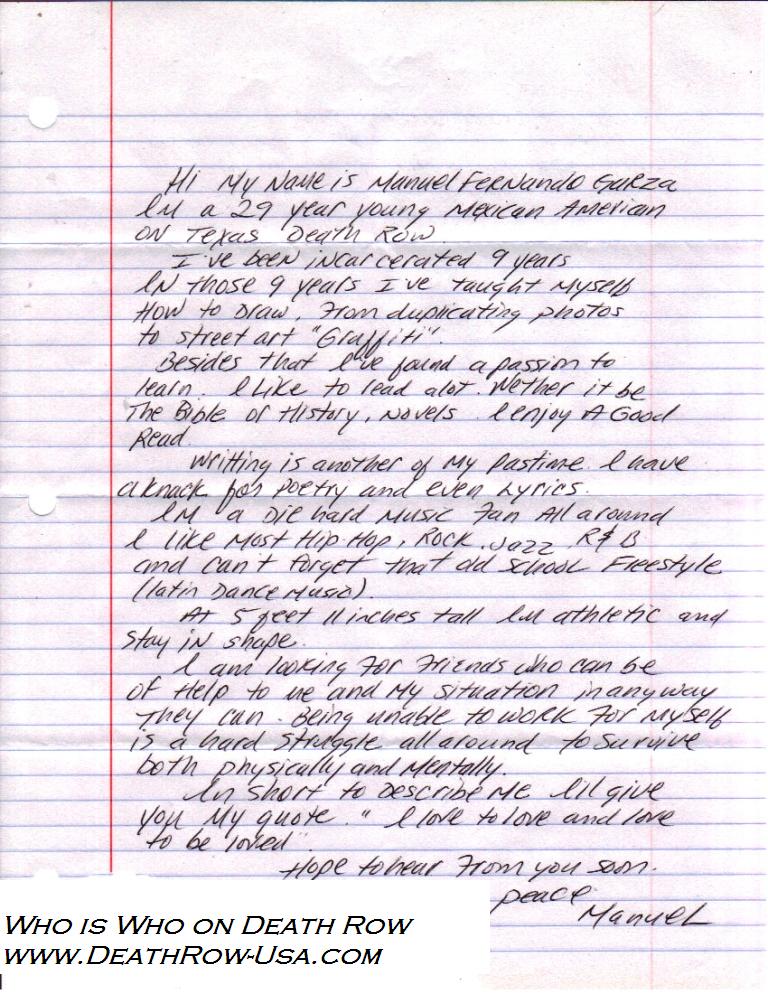 Hi My Name is Manuel Fernando Garza
Im a 29 year young Mexican American
on Texas Death Row
I've been incarcerated 9 years
In those 9 years I've taught myself
How to Draw. From duplicating photos
to street art "Graffiti".
Besides that I've found a passion to
learn. I Like to read alot. Wether it be
The Bible or History, Novels I enjoy A Good
Read.
Writting is another of My Pastime. I have
a knack for Poetry and even Lyrics.
Im a Die hard Music Fan All around
I like Most Hip Hop, Rock, Jazz R&B
and can't forget that old School Freestyle
(latin Dance Music).
At 5 feet 11 inches tall Im athletic and
stay in shape.
I am looking For Friends who can be
of Help to me and My situation in anyway
They can. Being unable to work For Myself
is a hard struggle all around to survive
both physically and Mentally.
In short to Describe Me I'll give
you My quote. "I love to love and love
to be loved".
Hope to hear From you soon.
peace
Manuel
Who is Who on Death Row
www.DeathRow-Usa.com